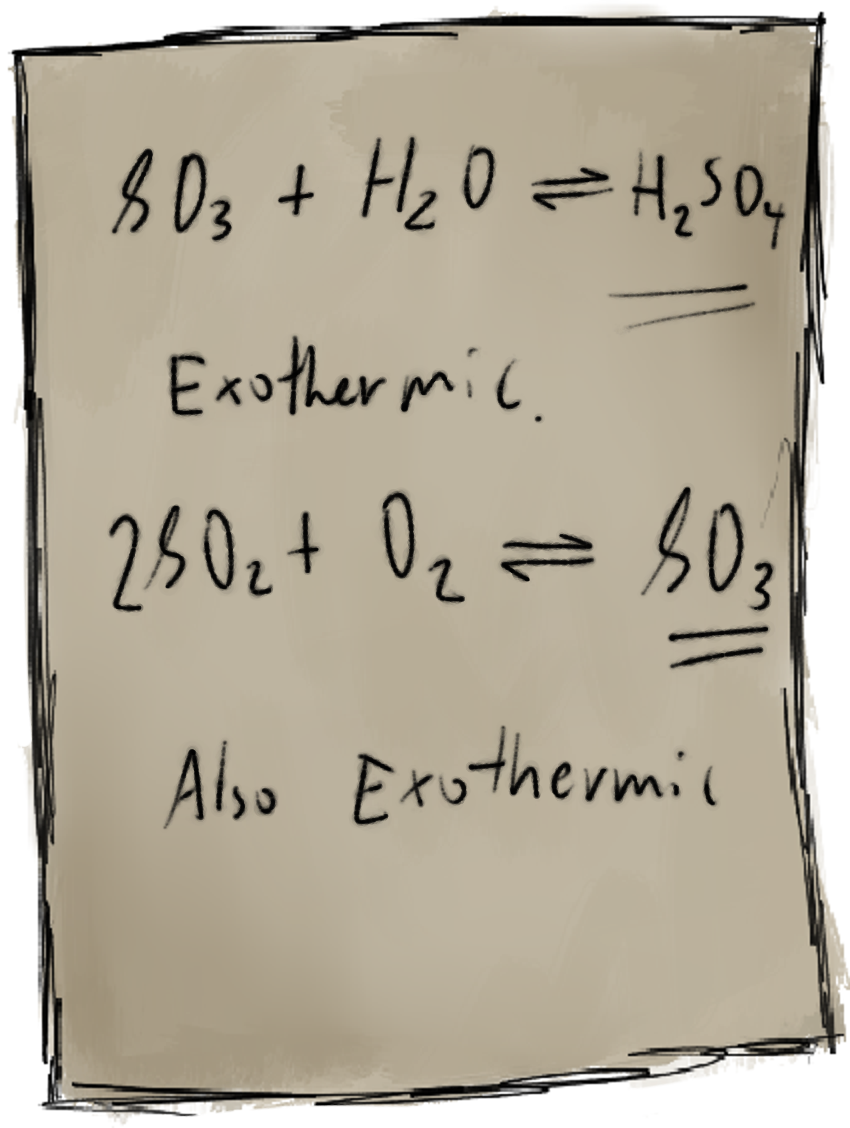 SO₃ + H₂O ⇌ H₂SO₄
Exothermic.
2SO₂ + O₂ ⇌ SO₃
Also Exothermic